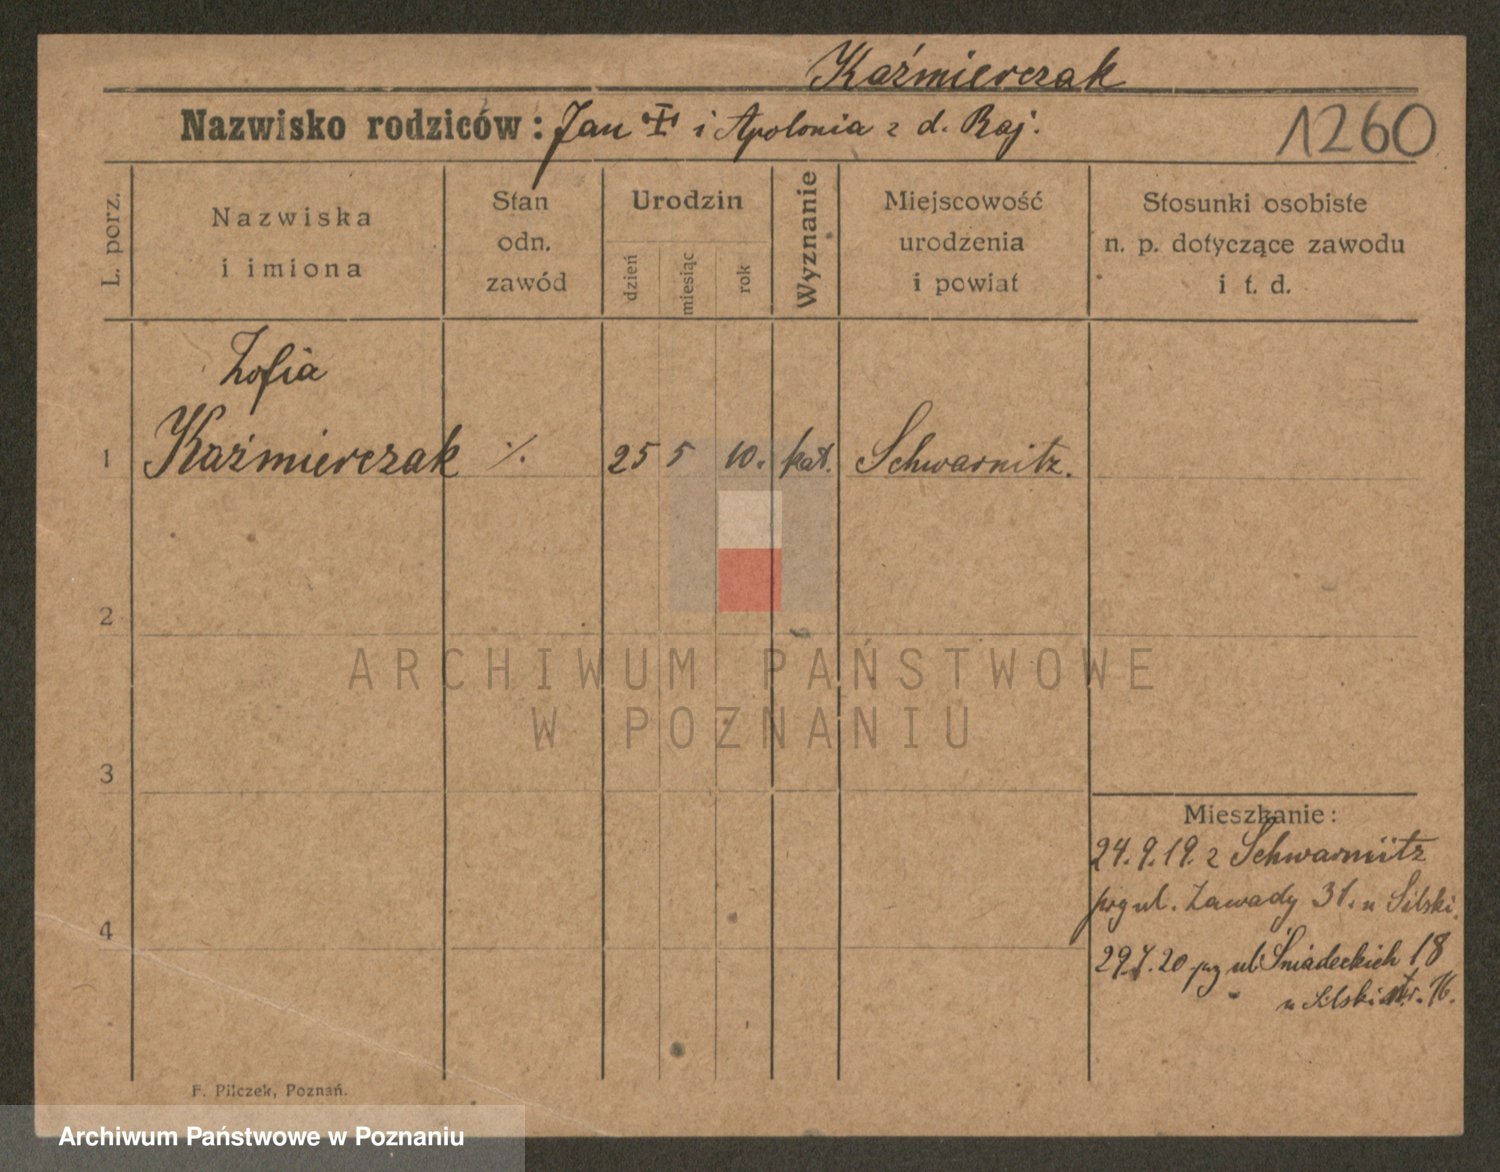 Kaźmierczak
Nazwisko rodziców: Jan ✝ i Apolonia z d. Raj.
1260
L. porz.
Nazwiska
i imiona
Stan
odn.
zawód
Urodzin
dzień
miesiąc
rok
Wyznanie
Miejscowość
urodzenia
i powiat
Stosunki osobiste
n. p. dotyczące zawodu
i t. d.
Zofia
1 Kaźmierczak ·/. 25 5 10. kat. Schwarnitz.
2
ARCHIWUM PAŃSTWOWE
W POZNANIU
3
Mieszkanie:
24.9.19. z Schwarnitz
prz ul. Zawady 31. u Silski.
4
29.7.20 prz ul Śniadeckich 18
u Silski 16.
F. Pilczek, Poznań.
Archiwum Państwowe w Poznaniu